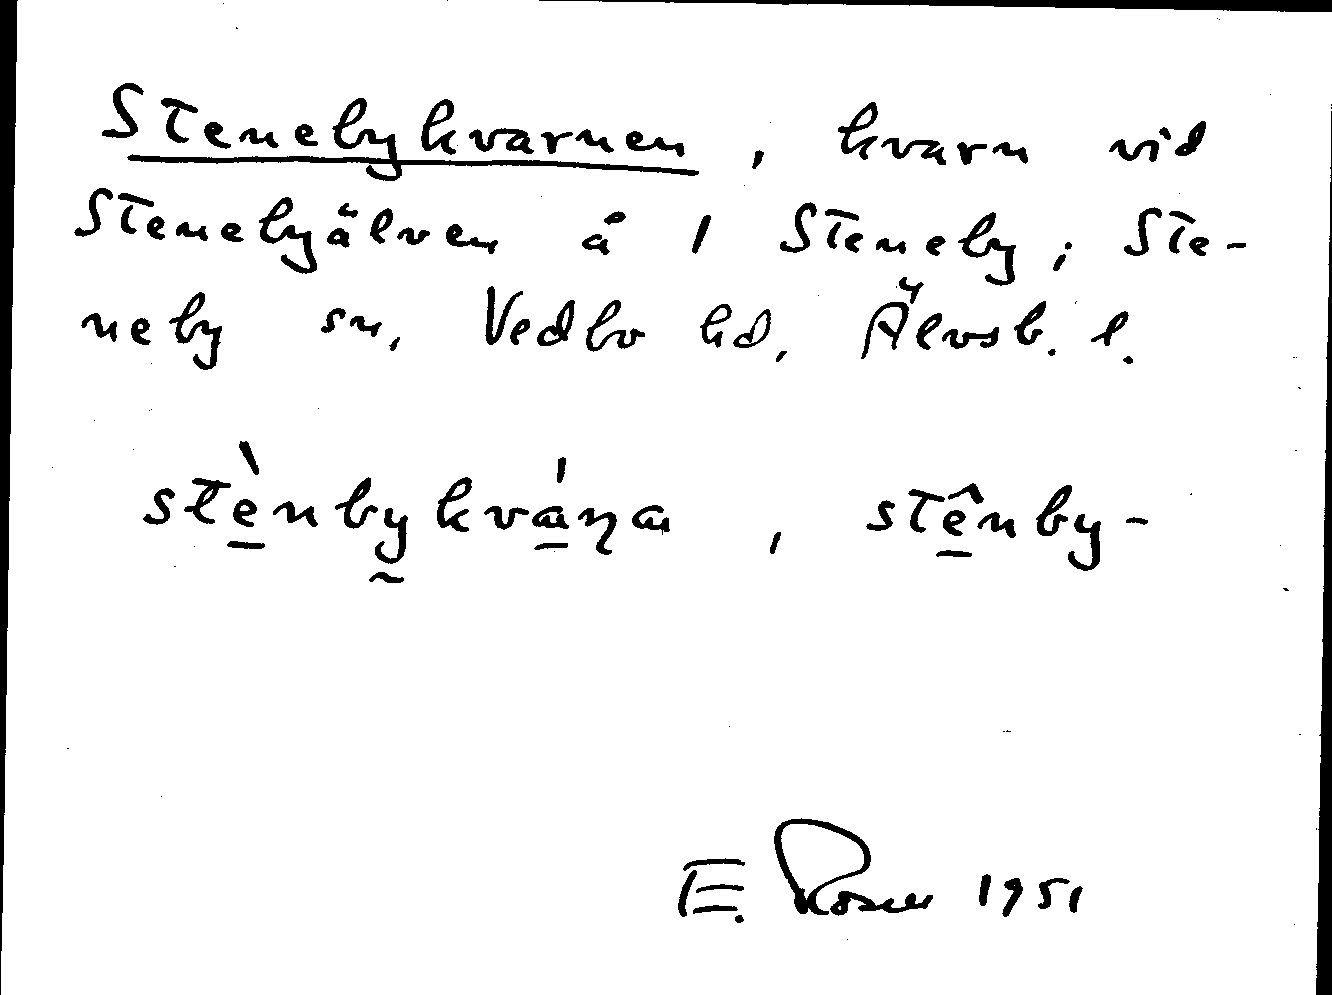 Stenebykvarnen, kvarn vid
Stenebyälven å 1 Steneby, Ste-
neby sn, Vedbo hd, Älvsb. l.
stè̱nby̰kvá̱ꞑa, stê̱nby-
E. Rosell 1951